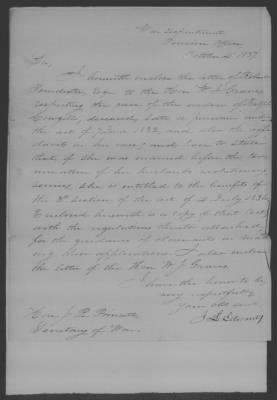 War Department
Pension Office
October 4, 1837
Sir,
I herewith enclose the letter of
Esqr to the Hon. W. J. Graves
respecting the case of the widow of
deceased, late a pensioner under
the act of 7 June 1832, and also the
in her case; and have to state
that if she was married before the ter-
mination of her husband's revolutionary
services, she is entitled to the benefits of
the 3d section of the act of 4 July 1836.
Enclosed herewith is a copy of that act,
with the regulations thereto attached
for the guidance of claimants in mak-
ing their applications. I also enclose
the letter of the Hon. W. J. Graves.
I have the honor to be
very respectfully
your obt servt
J. L. Edwards
Hon. J. R. Poinsett
Secretary of War